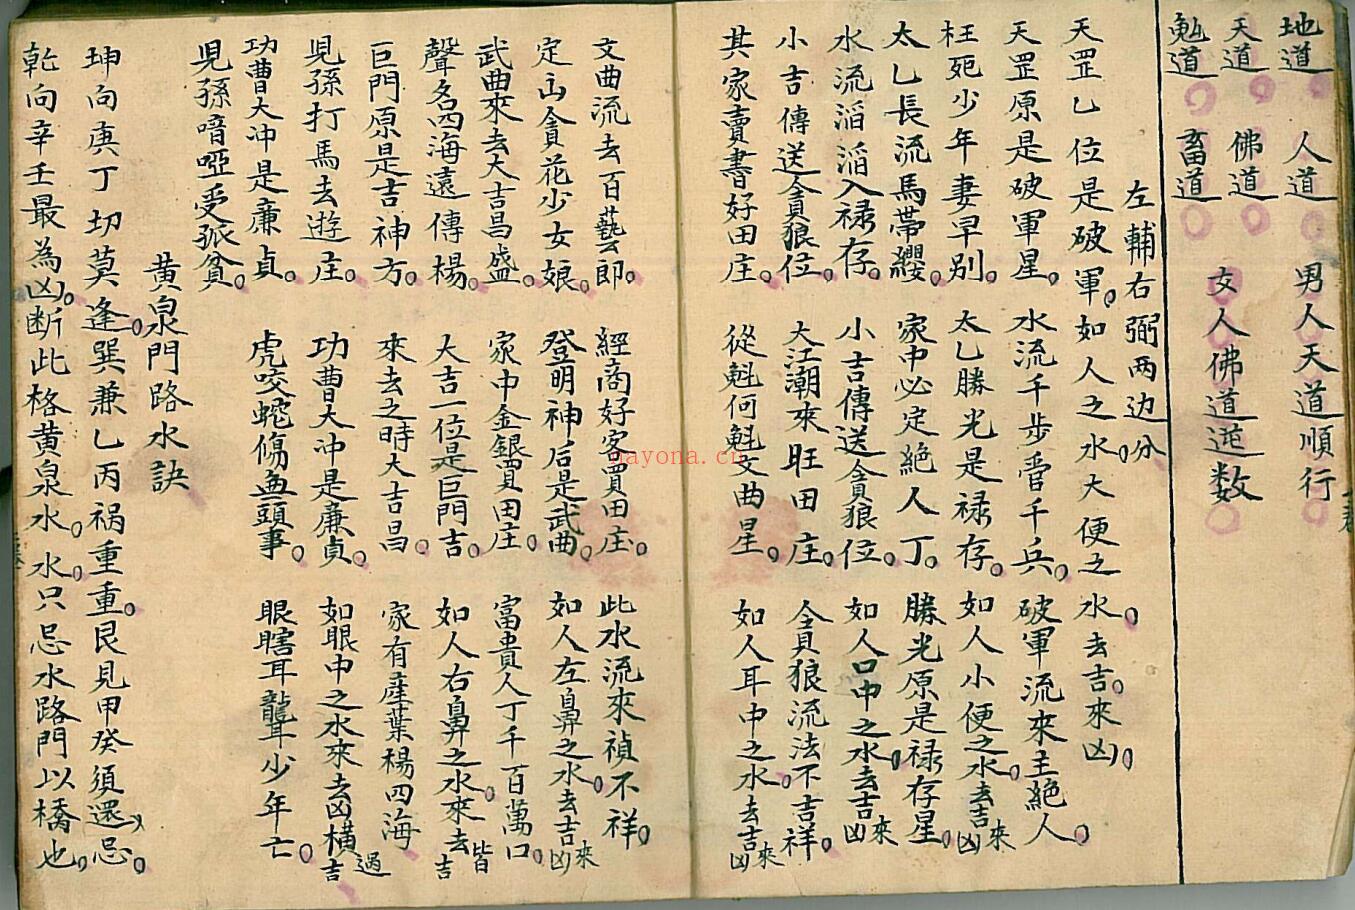 地道 人道 男人天道順行
天道 佛道 女人佛道逆数
鬼道 畜道
左輔右弼两边分
天罡乚位是破軍。如人之水大便之水。去吉。來凶。
天罡原是破軍星。水流千步帶千兵。破軍流來主絕人。
枉死少年妻早别。太乚勝光是禄存。如人小便之水。去吉來凶
太乚長流馬帶纓。家中必定絕人丁。勝光原是禄存星。
水流滔滔入禄存。小吉傳送貪狼位。如人口中之水。去吉來凶
小吉傳送貪狼位。大江潮來旺田庄。貪狼流法不吉祥。
其家賣書好田庄。從魁何魁文曲星。如人耳中之水。去吉來凶
文曲流去百藝郎。經商好客買田庄。此水流來禎不祥。
定山貪花少女娘。登明神后是武曲。如人左鼻之水。去吉來凶
武曲來去大吉昌盛。家中金銀買田庄。富貴人丁千百萬口。
聲名四海遠傳楊。大吉一位是巨門吉。如人右鼻之水。來去皆吉
巨門原是吉神方。來去之時大吉昌。家有產葉楊四海
児孫打馬去遊庄。功曹大冲是廉貞。如眼中之水來去凶橫過吉
功曹大冲是廉貞。虎咬蛇傷血頭事。眼瞎耳聾少年亡。
児孫喑啞受孤貧。
黄泉門路水訣
坤向庚丁切莫逢。巽兼乚丙禍重重。艮見甲癸須還忌。
乾向辛壬最為凶。断此格黄泉水。水只忌水路門以橋也。
nayona.cn